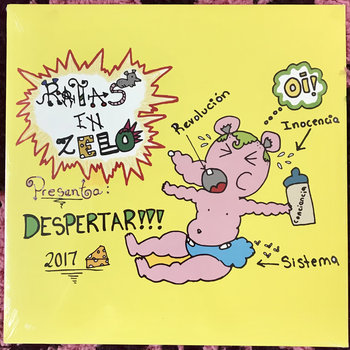 RATAS
EN
ZELO
Presenta:
DESPERTAR!!!
2017
Revolución
Oi!
Inocencia
Conciencia
Sistema